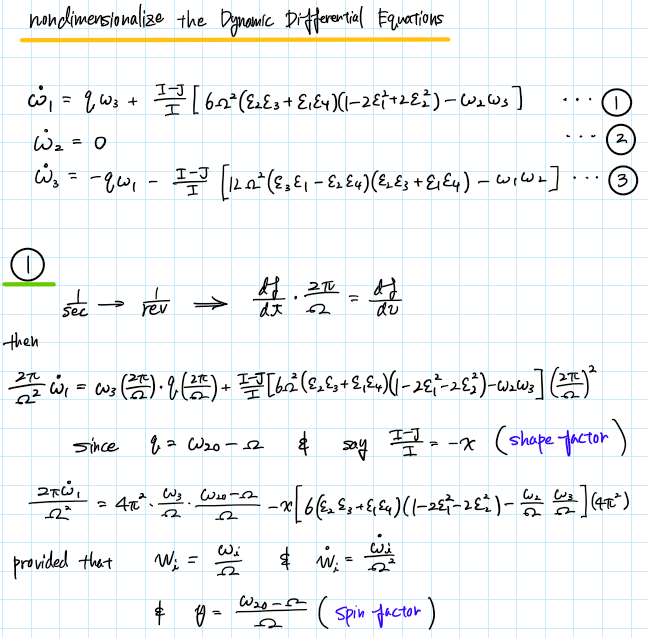 nondimensionalize the Dynamic Differential Equations
ω̇₁ = qω₃ + (I-J)/I [6Ω²(ε₂ε₃ + ε₁ε₄)(1-2ε₁²+2ε₂²) - ω₂ω₃] ... ①
ω̇₂ = 0 ... ②
ω̇₃ = -qω₁ - (I-J)/I [12Ω²(ε₃ε₁ - ε₂ε₄)(ε₂ε₃ + ε₁ε₄) - ω₁ω₂] ... ③
①
1/sec → 1/rev ⟹ df/dt · 2π/Ω = df/dν
then
2π/Ω² ω̇₁ = ω₃(2π/Ω)·q(2π/Ω) + (I-J)/I [6Ω²(ε₂ε₃+ε₁ε₄)(1-2ε₁²-2ε₂²)-ω₂ω₃](2π/Ω)²
since q = ω₂₀ - Ω & say (I-J)/I = -x (shape factor)
2πω̇₁/Ω² = 4π²· ω₃/Ω · (ω₂₀-Ω)/Ω - x[6(ε₂ε₃+ε₁ε₄)(1-2ε₁²-2ε₂²) - ω₂/Ω ω₃/Ω](4π²)
provided that wᵢ = ωᵢ/Ω & ẇᵢ = ω̇ᵢ/Ω²
& y = (ω₂₀-Ω)/Ω (spin factor)